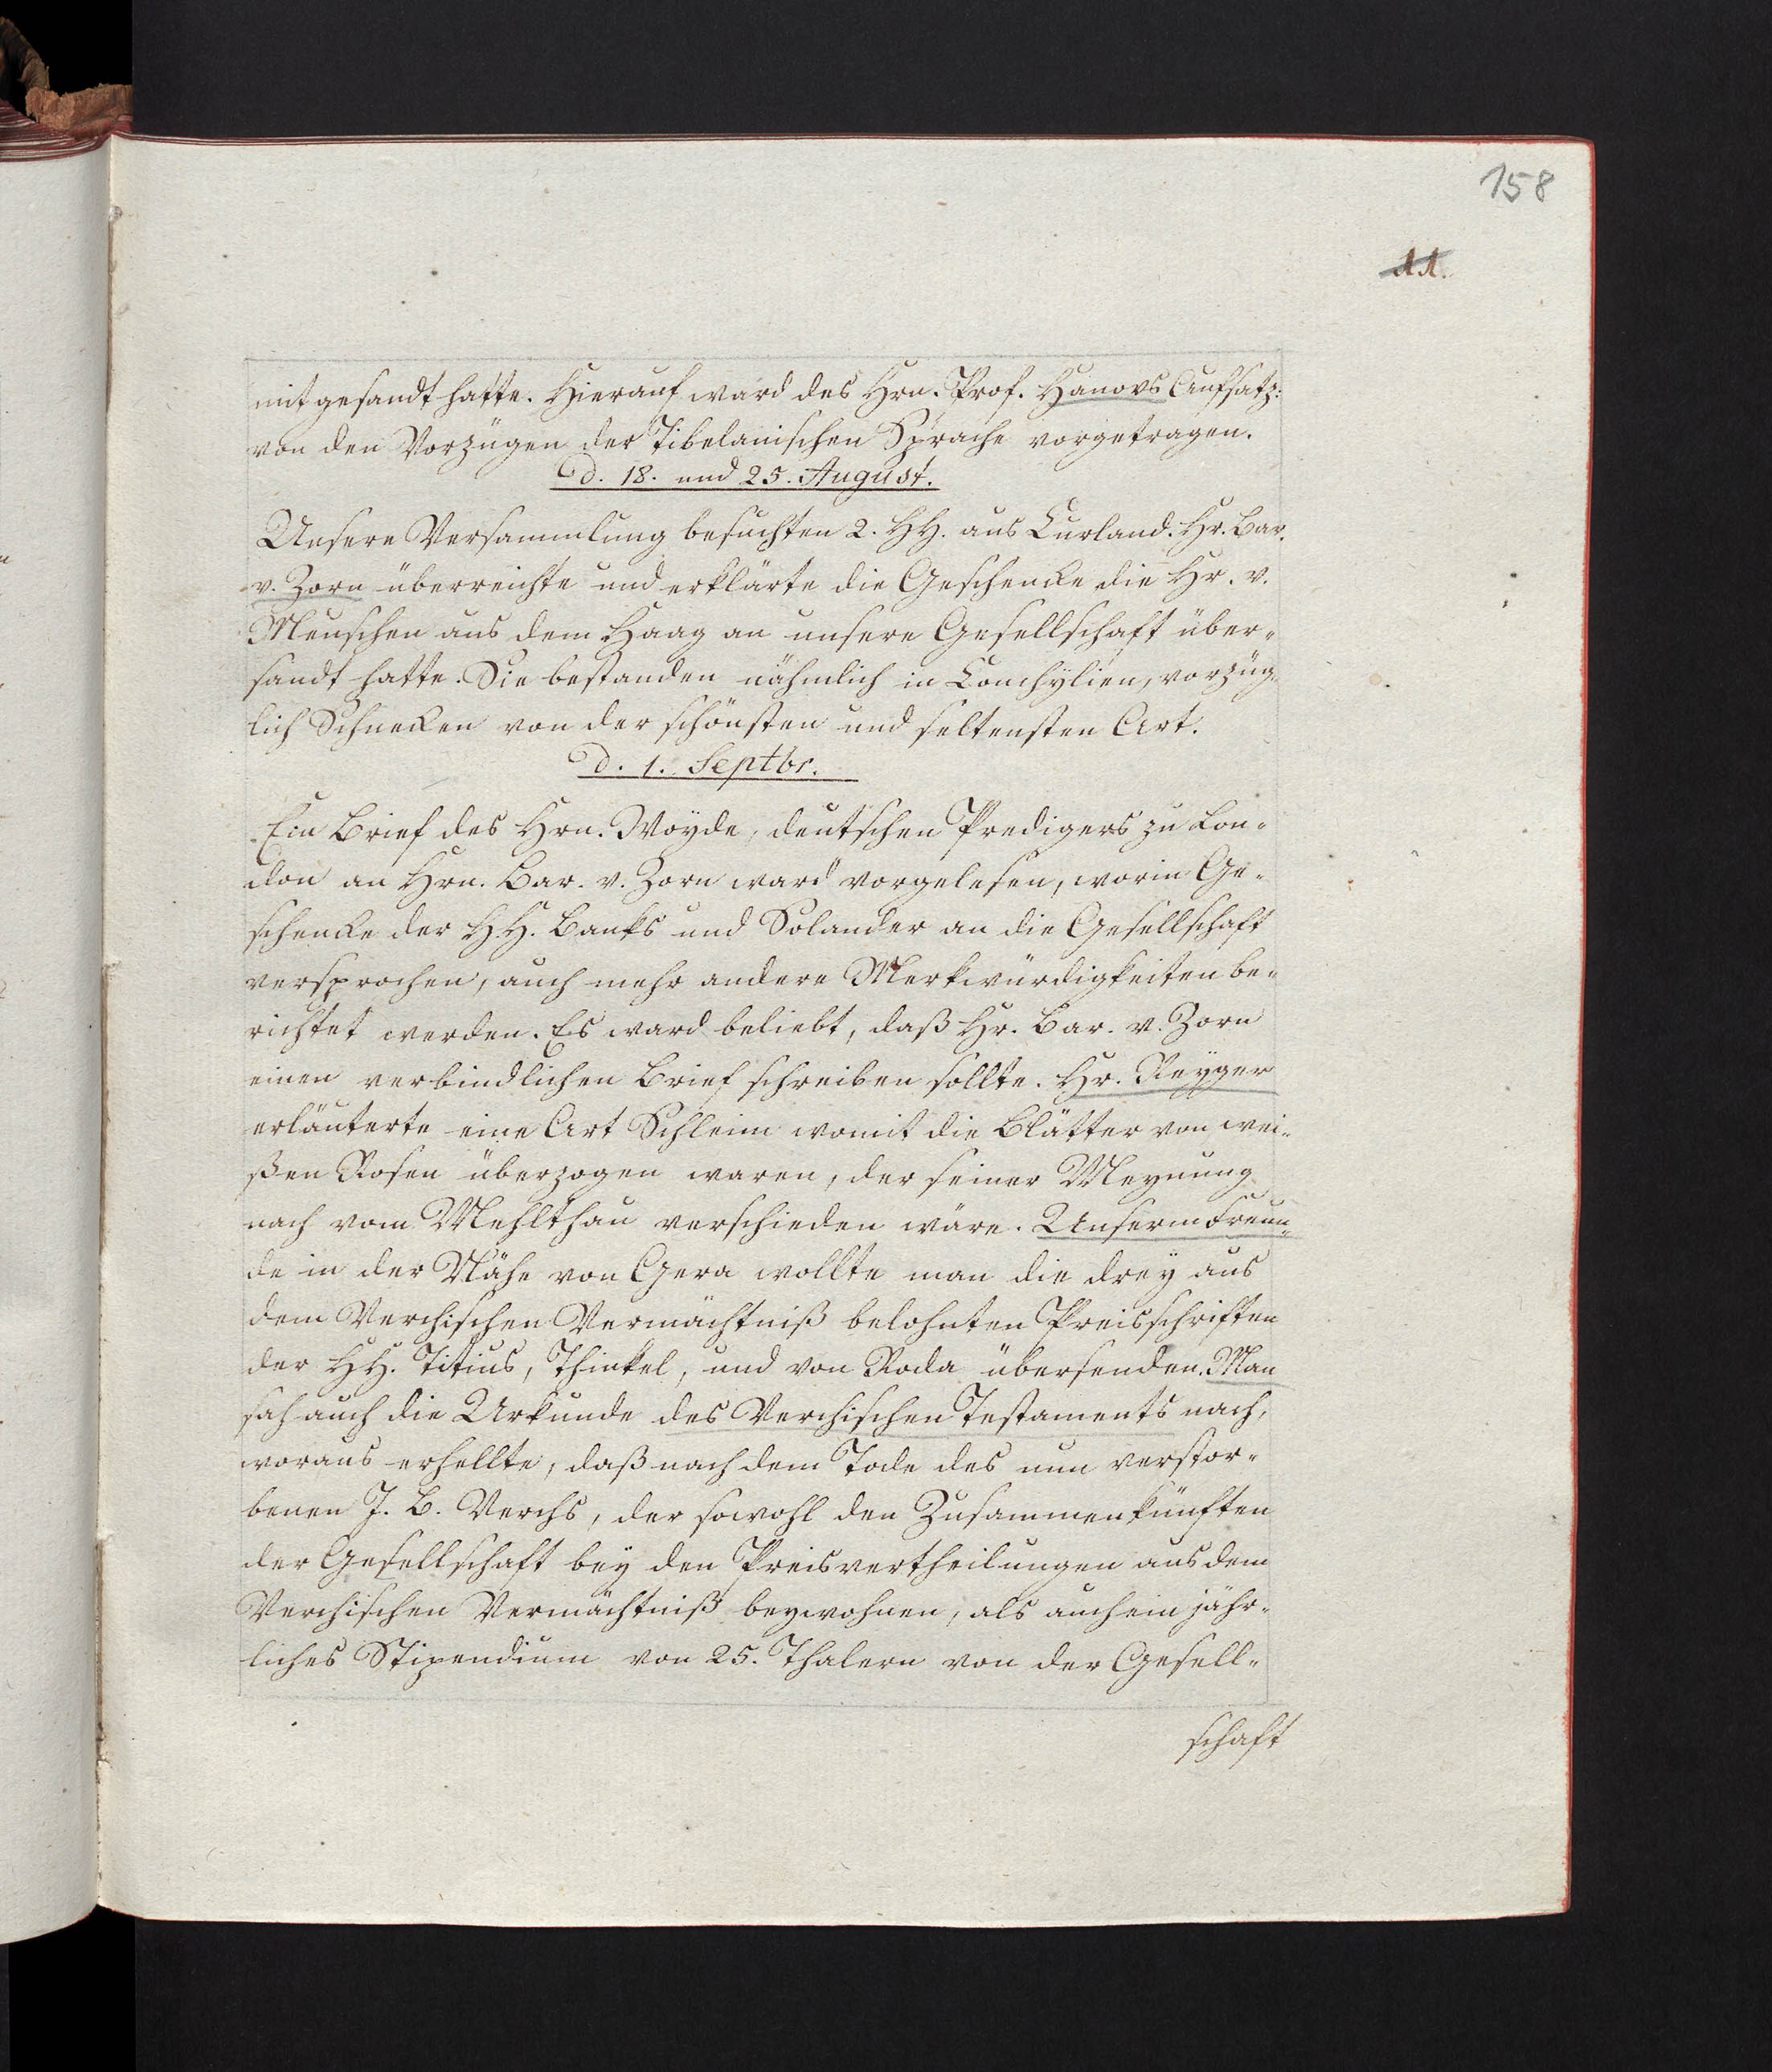 158
11.
mitgesandt hatte. Hierauf ward des Hrn. Prof. Hanovs Aufsatz:
von den Vorzügen der Tibelanischen Sprache vorgetragen.
d. 18. und 25. August.
Unsere Versammlung besuchten 2. HH. aus Curland. Hr. Bar.
v. Zorn überreichte und erklärte die Geschencke die Hr. v.
Meuschen aus dem Haag an unsere Gesellschaft über-
sandt hatte. Sie bestanden nähmlich in Conchylien, vorzüg-
lich Schnecken von der schönsten und seltensten Art.
d. 1. Septbr.
Ein Brief des Hrn. Woyde, deutschen Predigers zu Lon-
don an Hrn. Bar. v. Zorn ward vorgelesen, worin Ge-
schencke der HH. Banks und Solander an die Gesellschaft
versprochen, auch mehr andere Merkwürdigkeiten be-
richtet werden. Es ward beliebt, daß Hr. Bar. v. Zorn
einen verbindlichen Brief schreiben sollte. Hr. Reyger
erläuterte eine Art Schleim womit die Blätter von wei-
ßen Rosen überzogen waren, der seiner Meynung
nach vom Mehlthau verschieden wäre. Unserm Freun-
de in der Nähe von Gera wollte man die drey aus
dem Verchischen Vermächtniß belohnten Preisschriften
der HH. Titius, Thinkel, und von Roda übersenden. Man
sah auch die Urkunde des Verchischen Testaments nach,
woraus erhellte, daß nach dem Tode des nun verstor-
benen J. B. Verchs, der sowohl den Zusammenkünften
der Gesellschaft bey den Preisvertheilungen aus dem
Verchischen Vermächtniß beywohnen, als auch ein jähr-
liches Stipendium von 25. Thalern von der Gesell-
schaft